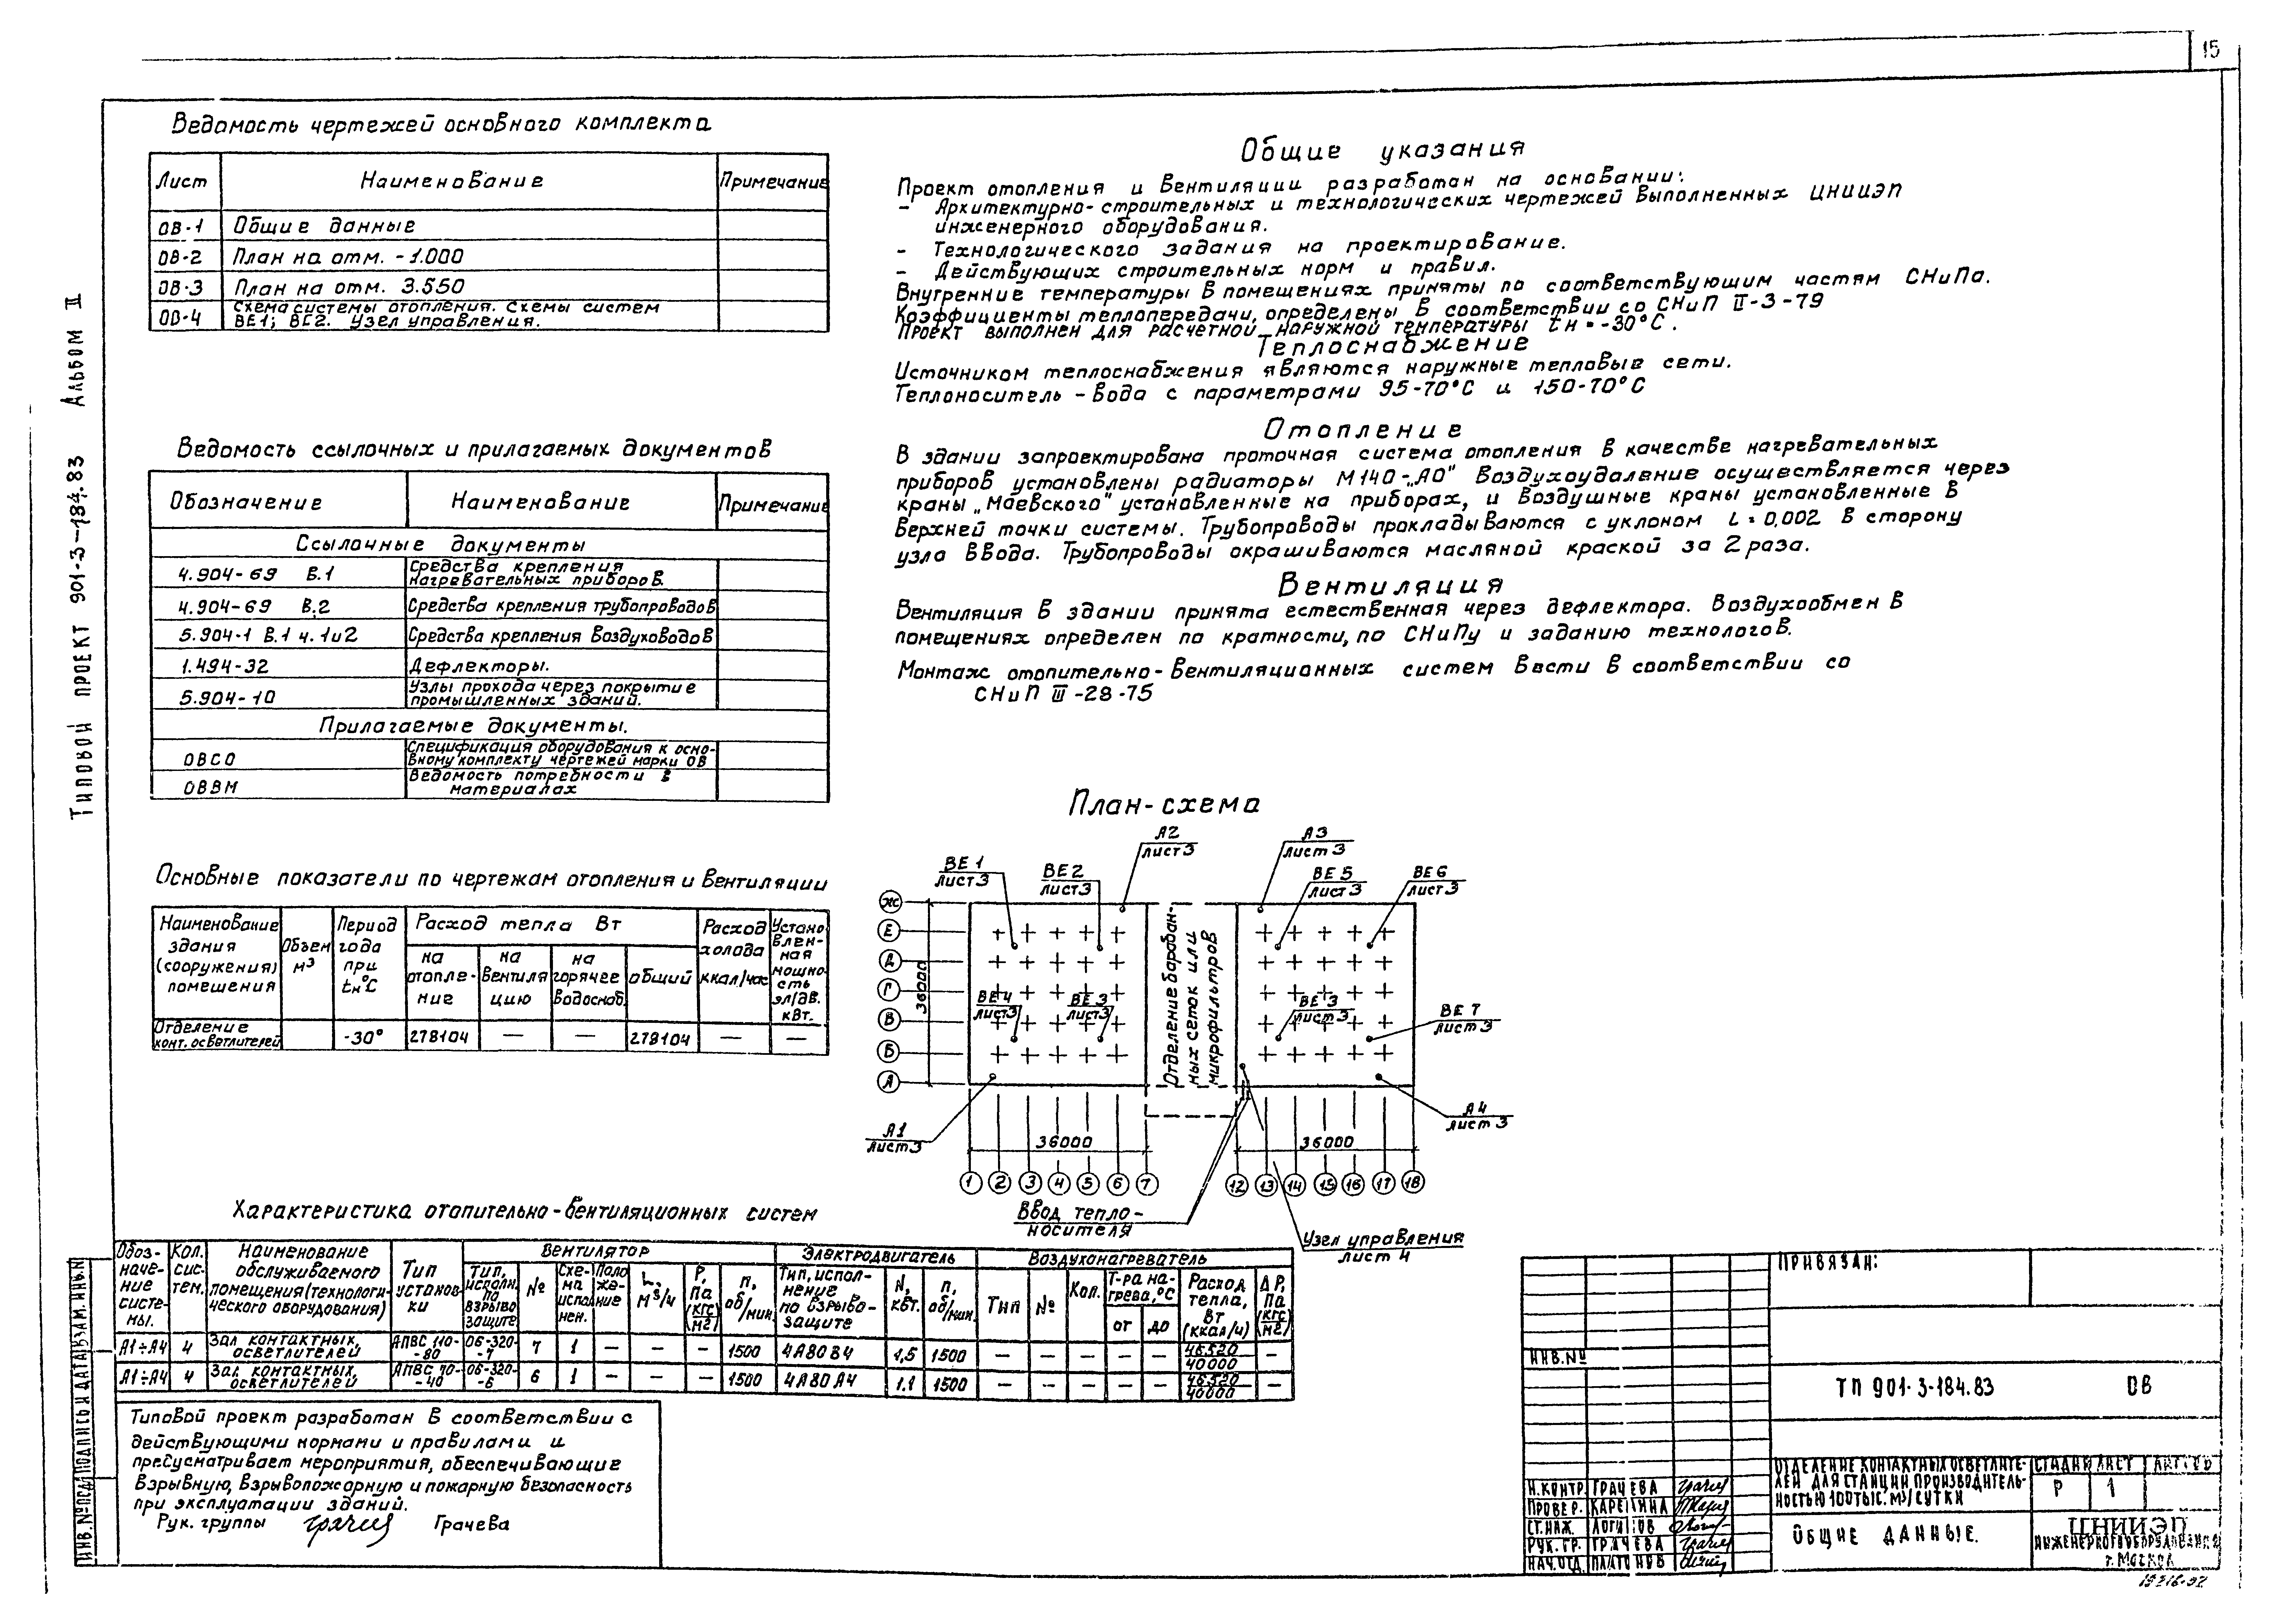 15
Ведомость чертежей основного комплекта
Лист Наименование Примечание
ОВ-1 Общие данные
ОВ-2 План на отм. -1.000
ОВ-3 План на отм. 3.550
ОВ-4 Схема системы отопления. Схемы систем
ВЕ1; ВЕ2. Узел управления.
Ведомость ссылочных и прилагаемых документов
Обозначение Наименование Примечание
Ссылочные документы
4.904-69 В.1 Средства крепления
нагревательных приборов.
4.904-69 В.2 Средства крепления трубопроводов
5.904-1 В.1 ч. 1и2 Средства крепления воздуховодов
1.494-32 Дефлекторы.
5.904-10 Узлы прохода через покрытие
промышленных зданий.
Прилагаемые документы.
ОВСО Спецификация оборудования к осно-
вному комплекту чертежей марки ОВ
ОВВМ Ведомость потребности в
материалах
Основные показатели по чертежам отопления и вентиляции
Наименование здания (сооружения) помещения
Объем м³
Период года при tн°С
Расход тепла Вт
на отопле-ние
на вентиля цию
на горячее водоснаб.
общий
Расход холода ккал/час
Устано влен-ная мощно-сть эл/дв. кВт.
Отделение
конт. осветлителей -30° 278104 — — 278104 — —
Общие указания
Проект отопления и вентиляции разработан на основании:
- Архитектурно-строительных и технологических чертежей выполненных ЦНИИЭП
инженерного оборудования.
- Технологического задания на проектирование.
- Действующих строительных норм и правил.
Внутренние температуры в помещениях приняты по соответствующим частям СНиПа.
Коэффициенты теплопередачи, определены в соответствии со СНиП II-3-79
Проект выполнен для расчетной наружной температуры tн = -30°С.
Теплоснабжение
Источником теплоснабжения являются наружные тепловые сети.
Теплоноситель - вода с параметрами 95-70°С и 150-70°С
Отопление
В здании запроектирована проточная система отопления в качестве нагревательных
приборов установлены радиаторы М140-„АО" Воздухоудаление осуществляется через
краны „Маевского" установленные на приборах, и воздушные краны установленные в
верхней точки системы. Трубопроводы прокладываются с уклоном i = 0,002 в сторону
узла ввода. Трубопроводы окрашиваются масляной краской за 2 раза.
Вентиляция
Вентиляция в здании принята естественная через дефлектора. Воздухообмен в
помещениях определен по кратности, по СНиПу и заданию технологов.
Монтаж отопительно-вентиляционных систем вести в соответствии со
СНиП III-28-75
План-схема
А2
лист 3
А3
лист 3
ВЕ 1
лист 3
ВЕ 2
лист 3
ВЕ 5
лист 3
ВЕ 6
лист 3
Ж
Е
Д
Г
В
Б
А
36000
ВЕ 4
лист 3
ВЕ 3
лист 3
Отделение барабан-
ных сеток или
микрофильтров
ВЕ 3
лист 3
ВЕ 7
лист 3
А1
лист 3
А4
лист 3
36000 36000
1 2 3 4 5 6 7 12 13 14 15 16 17 18
Ввод тепло-
носителя
Узел управления
лист 4
Характеристика отопительно-вентиляционных систем
Обоз-наче-ние систе-мы.
Кол. сис-тем.
Наименование обслуживаемого помещения (технологи-ческого оборудования)
Тип установ-ки
Вентилятор
Тип, исполн. по взрыво защите
№
Схе-ма испол нен.
Поло же-ние
L, м³/ч
Р, Па (кгс/м2)
п, об/мин.
Электродвигатель
Тип, испол-нение по взрыво-защите
N, кВт.
п, об/мин
Воздухонагреватель
Тип
№
Кол.
Т-ра на-грева, °С
от до
Расход тепла, Вт (ккал/ч)
ΔР, Па (кгс/м2)
А1÷А4 4 Зал контактных осветлителей АПВС 110-80 06-320-7 7 1 — — — 1500 4А80В4 1,5 1500 — — — — — 46520 40000 —
А1÷А4 4 Зал контактных осветлителей АПВС 70-40 06-320-6 6 1 — — — 1500 4А80А4 1.1 1500 — — — — — 46520 40000 —
Типовой проект разработан в соответствии с
действующими нормами и правилами и
предусматривает мероприятия, обеспечивающие
взрывную, взрывопожарную и пожарную безопасность
при эксплуатации зданий.
Рук. группы Грачева
Типовой проект 901-3-184.83 Альбом II
ИНВ. № ПОДЛ ПОДПИСЬ И ДАТА ВЗАМ. ИНВ. N
ПРИВЯЗАН:
ИНВ. №
ТП 901-3-184.83 ОВ
Н.КОНТР. ГРАЧЕВА
ПРОВЕР. КАРЕТИНА
СТ.ИНЖ. ЛОГИНОВ
РУК. ГР. ГРАЧЕВА
НАЧ.ОТД. ПЛАТОНОВ
ОТДЕЛЕНИЕ КОНТАКТНЫХ ОСВЕТЛИТЕ-
ЛЕЙ ДЛЯ СТАНЦИИ ПРОИЗВОДИТЕЛЬ-
НОСТЬЮ 100ТЫС. М³/СУТКИ
СТАДИЯ ЛИСТ ЛИСТОВ
Р 1
ОБЩИЕ ДАННЫЕ.
ЦНИИЭП
ИНЖЕНЕРНОГО ОБОРУДОВАНИЯ
г. МОСКВА